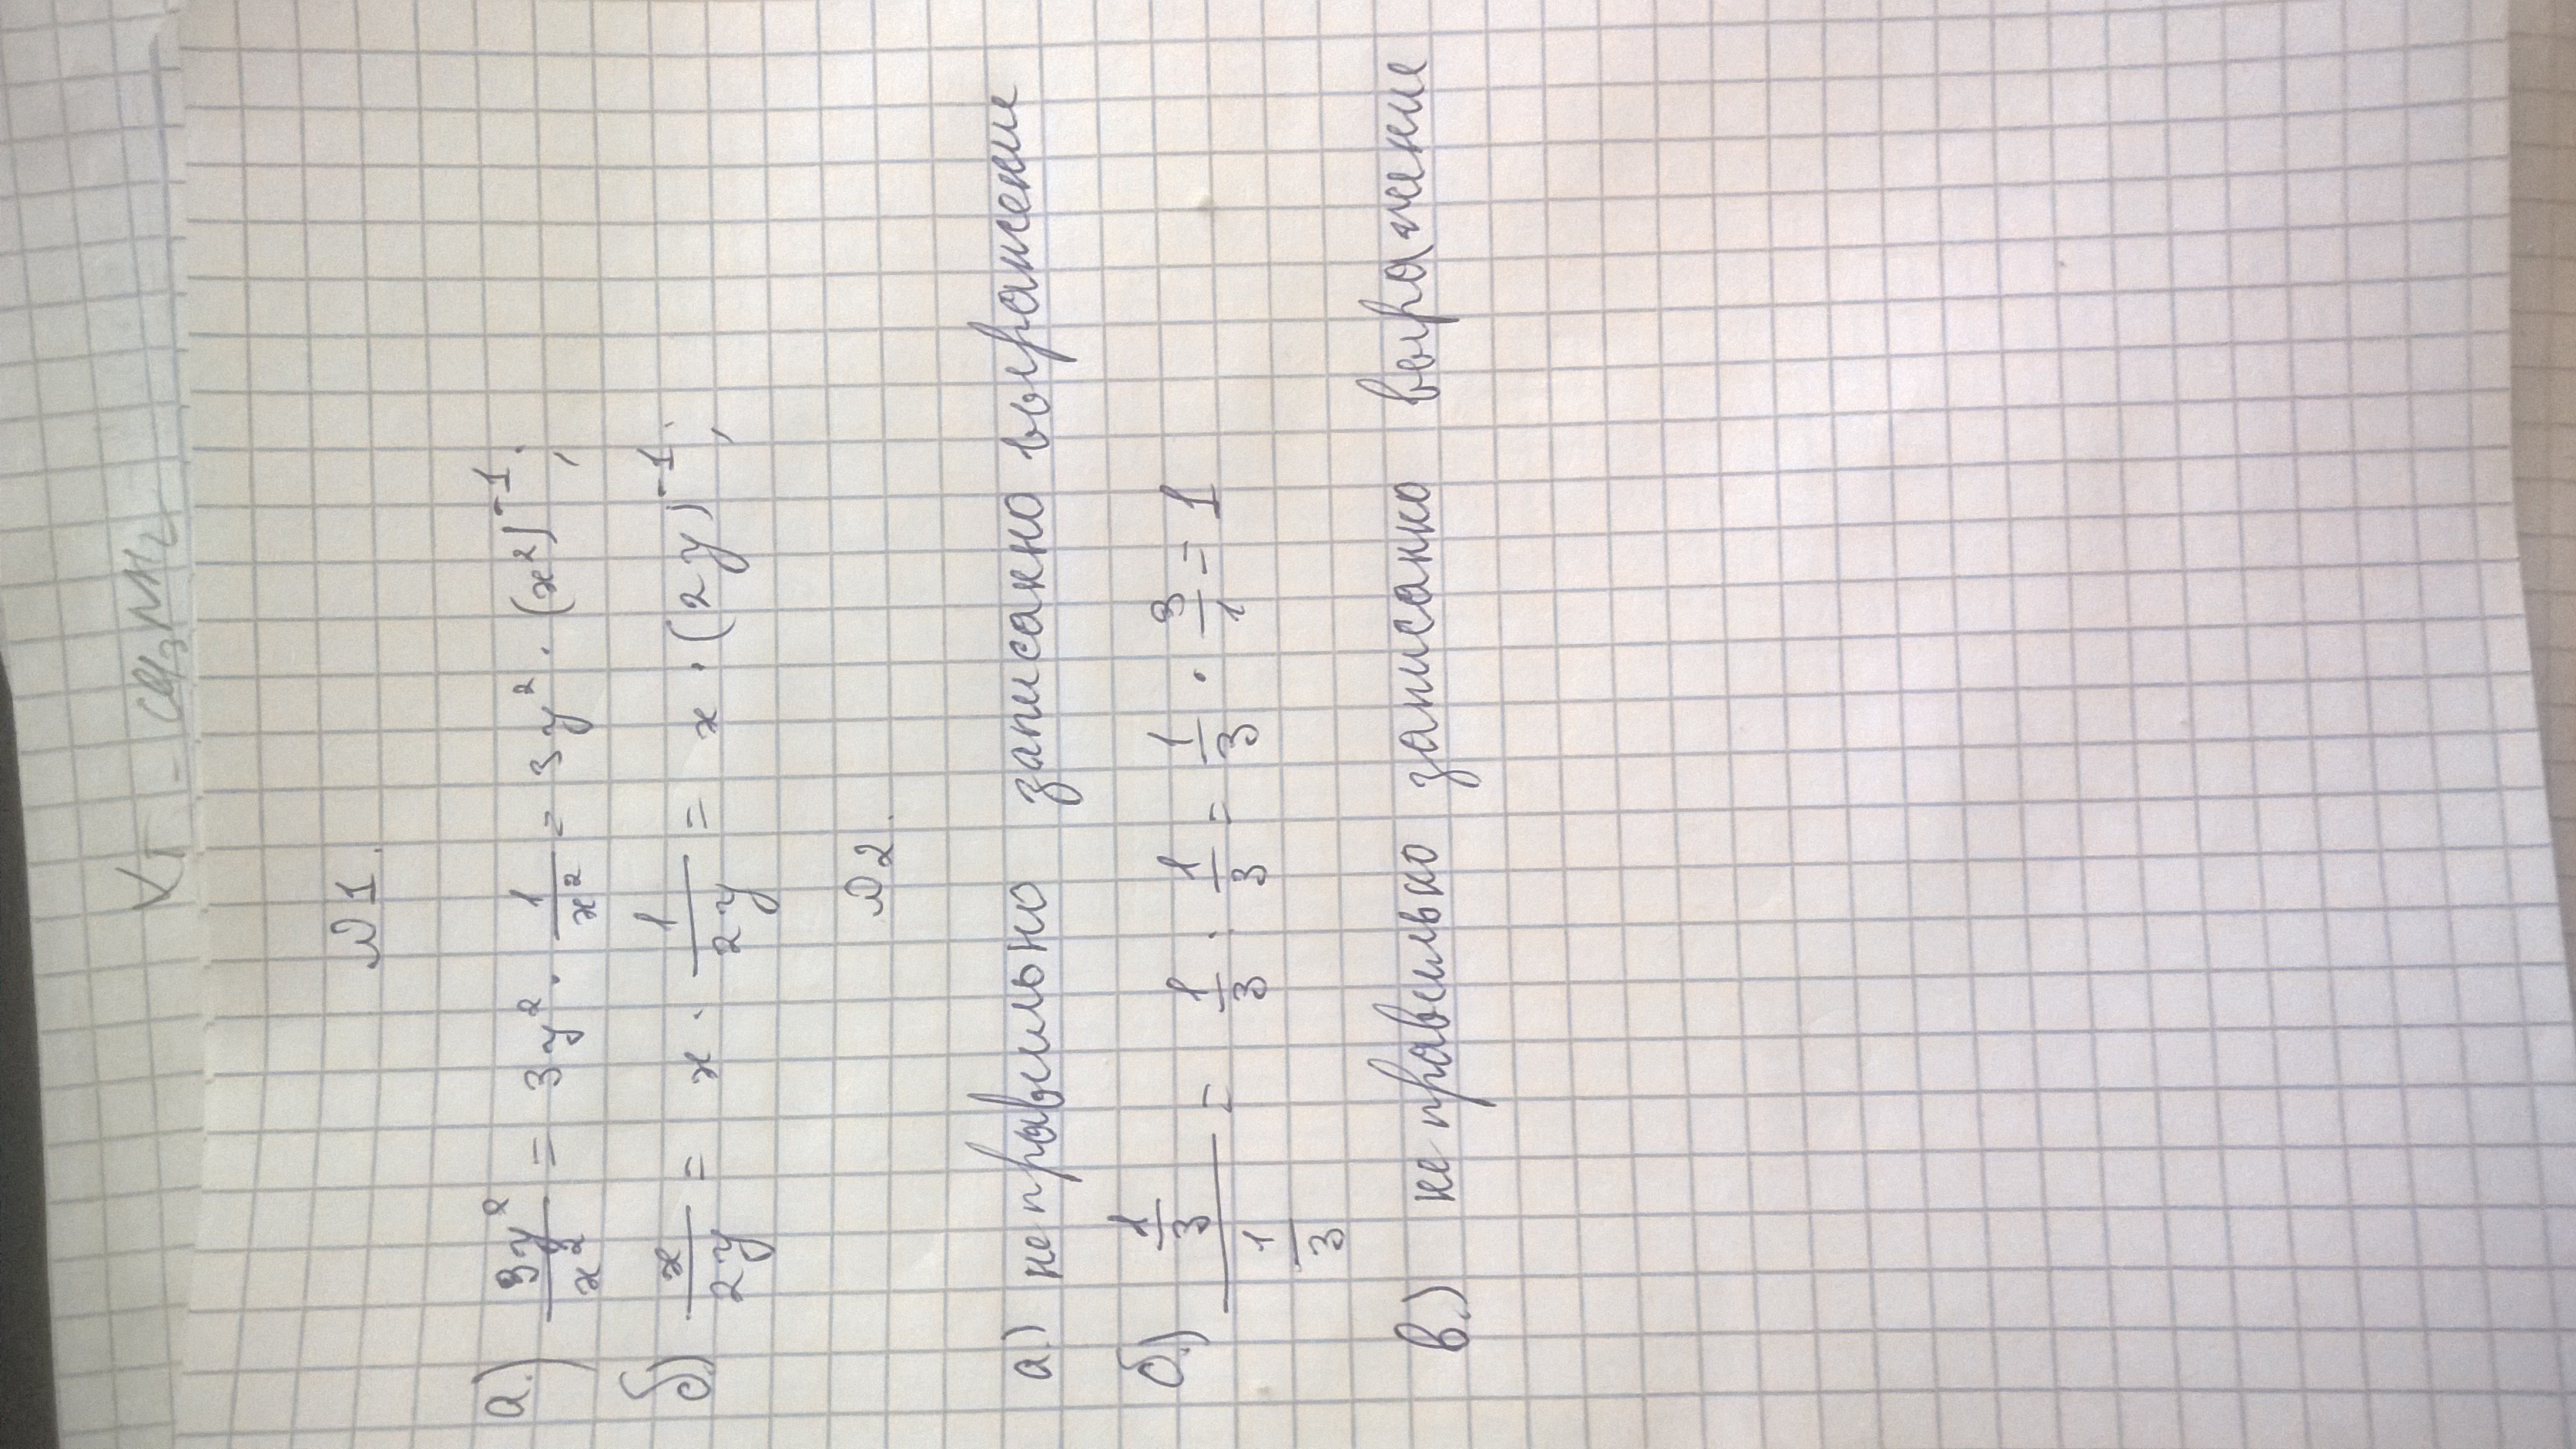 V₁ - CH₃NH₂
№1.
а.) 3y²/x² = 3y² · 1/x² = 3y² · (x²)⁻¹;
б.) x/2y = x · 1/2y = x · (2y)⁻¹;
№2.
а.) не правильно записанно выражение
б.) 1/3 / 1/3 = 1/3 : 1/3 = 1/3 · 3/1 = 1
в.) не правильно записанно выражение